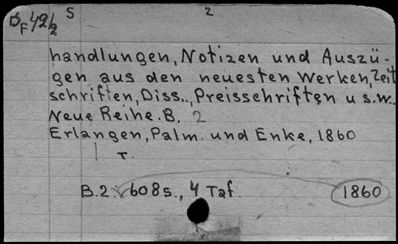 B F 42/2 S 2
handlungen, Notizen und Auszü-
gen aus den neuesten Werken, Zeit
schriften, Diss., Preisschriften u s.w.
Neue Reihe. B. 2
Erlangen, Palm. und Enke, 1860
1 T.
B.2. 608 s., 4 Taf. 1860